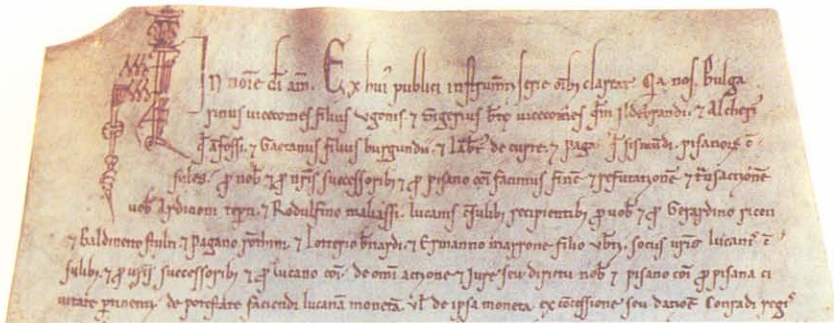 In noīe dī am̄. Ex hui' publici instrumti serie oīb; clarear Qa nos. Bulga
rinus uicecomes filius ugonis ⁊ Sigerius uicecomes qm Ildebrandi. ⁊ Alcheri'
⁊ Gaetanus filius burgundii. ⁊ de curte. ⁊ paga sismūdi. pisanor̄ c̄
sules. ꝓ nob ⁊ ꝓ nr̄is successorib; ⁊ ꝓ pisano cōi facimus finē ⁊ refutationē ⁊ tr̄nsactionē
uob Ardicioni ⁊ Rodulfino maliassi. lucanis c̄sulib; recipientib; ꝓ uob ⁊ ꝓ Gerardino
⁊ Baldinetto ⁊ Pagano ⁊ Lotterio b̄nardi. ⁊ Ermanno marrone filio sociis ur̄is lucanis c̄
sulib; ⁊ ꝓ ur̄is successorib; ⁊ ꝓ lucano cōi. de omi actione ⁊ iure seu directu nob ⁊ pisano cōi ꝓ pisana ci
uitate ꝑtinenti. de potestate faciendi lucanā monetā. ul̄ de ipsa moneta. ex c̄cessione seu datione Conradi regis